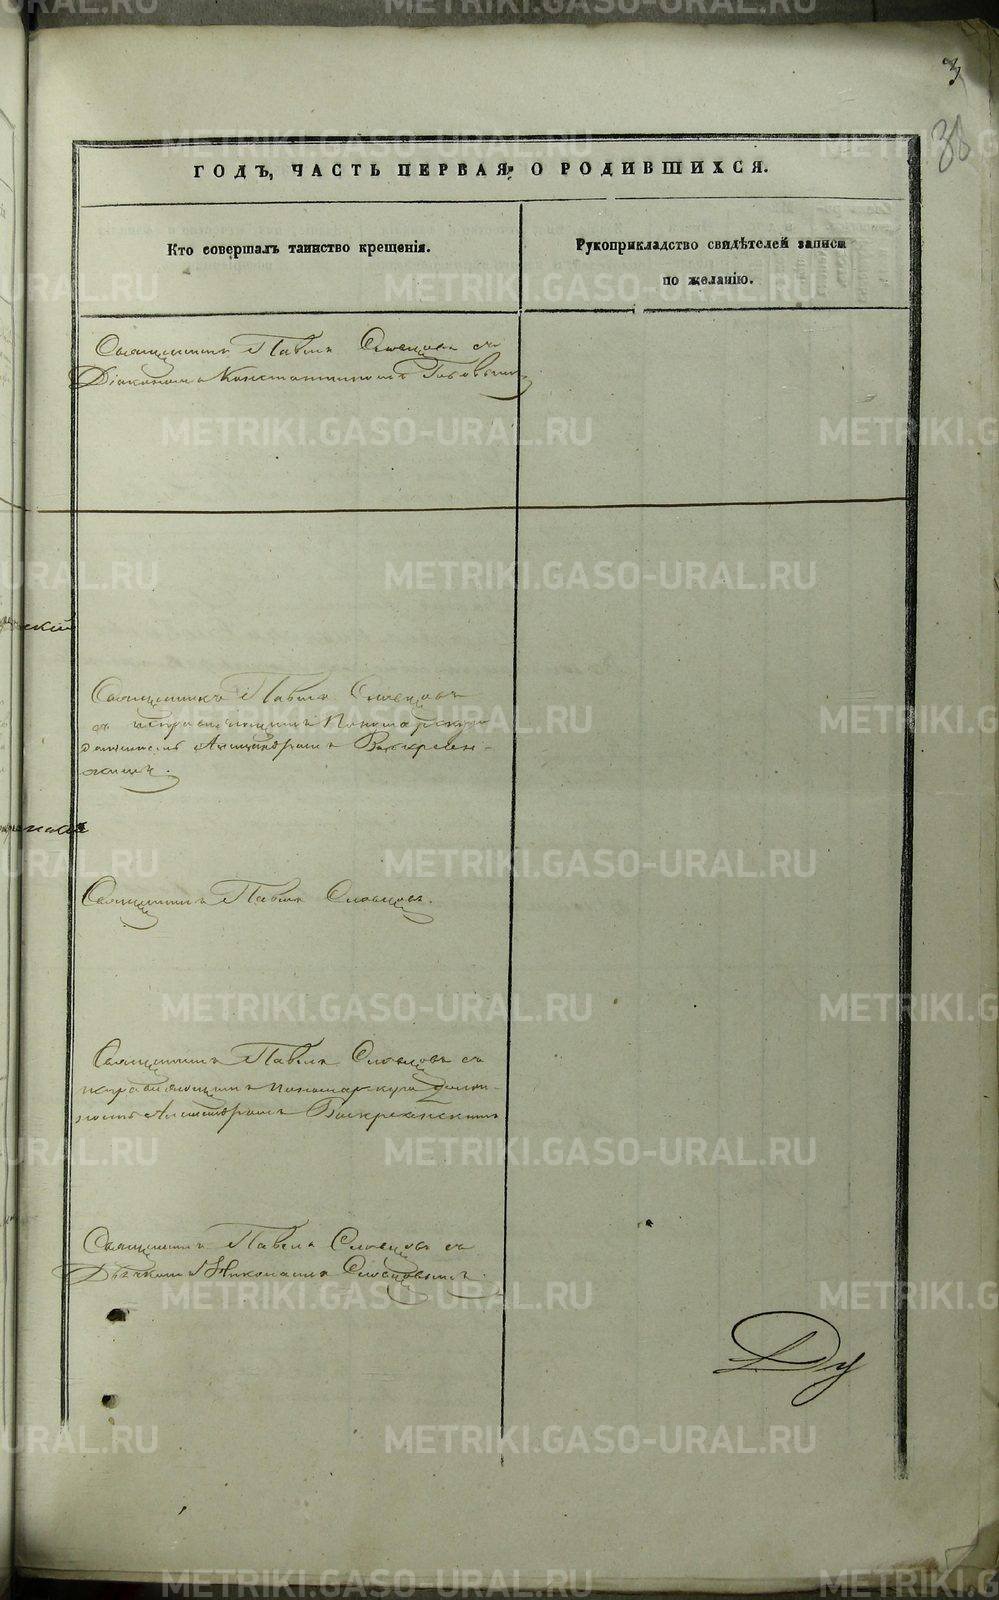 3
38
ГОДЪ, ЧАСТЬ ПЕРВАЯ, О РОДИВШИХСЯ.
Кто совершалъ таинство крещенія.
Рукоприкладство свидѣтелей записи
по желанію.
Священникъ Павелъ Словцовъ съ
Діакономъ Константиномъ
скій
Священникъ Павелъ Словцовъ
съ исправляющимъ Пономарскую
должность Александромъ Воскресен-
скимъ.
Священникъ Павелъ Словцовъ.
Священникъ Павелъ Словцовъ съ
исправляющимъ пономарскую долж-
ность Александромъ Воскресенскимъ
Священникъ Павелъ Словцовъ съ
Дьячкомъ Николаемъ Словцовымъ.
Ду
METRIKI.GASO-URAL.RU